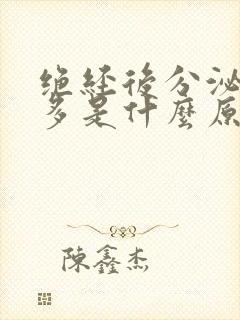 绝经後分泌
多是什麼原
陳鑫杰